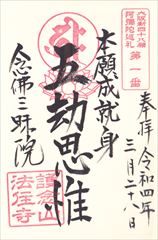 大坂新四十八願
阿彌陀巡礼
第一番
奉拝 令和四年
三月二十八日
本願成就身
五劫思惟
念佛三昧院
護念山
法住寺